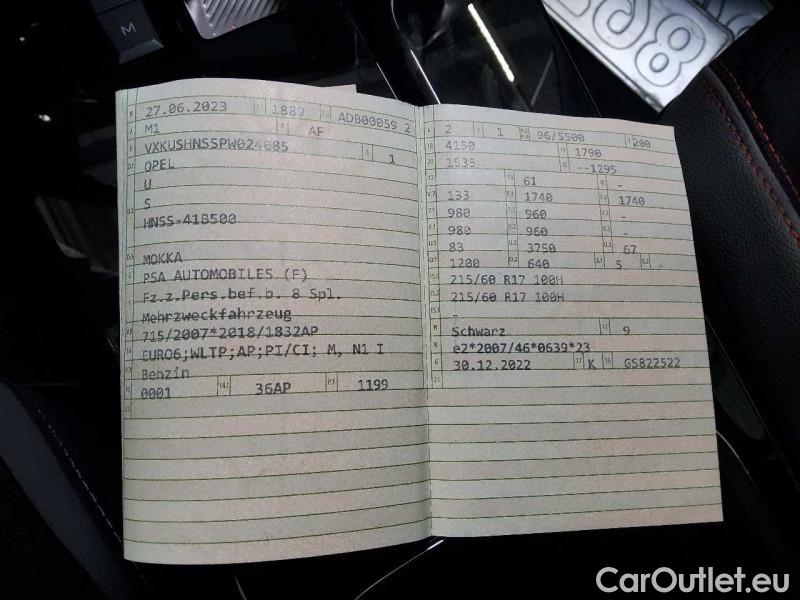 M
27.06.2023 1889 ADB00059 2
M1 AF
VXKUSHNSSPW024085 1
OPEL
U
S
HNSS-41B500
MOKKA
PSA AUTOMOBILES (F)
Fz.z.Pers.bef.b. 8 Spl.
Mehrzweckfahrzeug
715/2007*2018/1832AP
EURO6;WLTP;AP;PI/CI; M, N1 I
Benzin
0001 36AP 1199
2 1 96/5500 200
4150 1790
1535 --1295
61 -
133 1740 1740
980 960 -
980 960 -
83 3750 67
1200 640 5 -
215/60 R17 100H
215/60 R17 100H
-
Schwarz 9
e2*2007/46*0639*23
30.12.2022 K GS822522
CarOutlet.eu